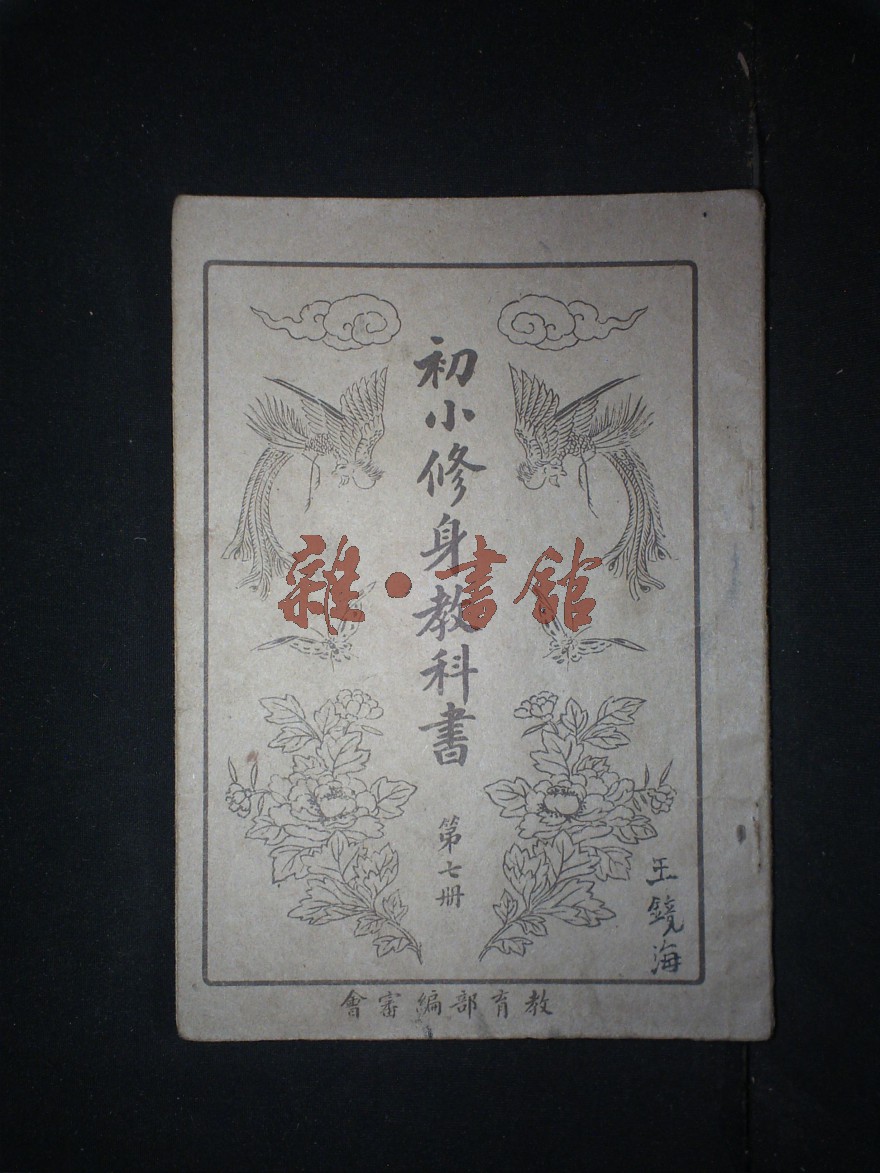 初小修身教科書
第七册
王鏡海
教育部編審會
雜·書館